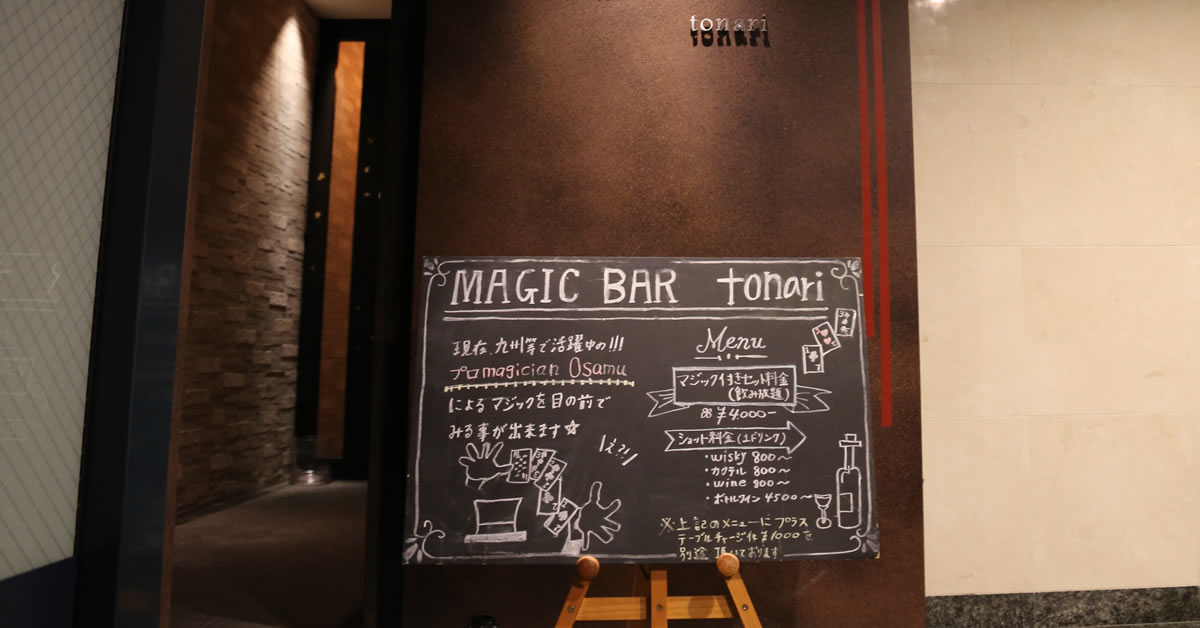 tonari
MAGIC BAR tonari
現在、九州等で活躍中の!!!
プロmagician Osamu
によるマジックを目の前で
みる事が出来ます☆
Menu
マジック付きセット料金
(飲み放題)
¥4,000-
ショット料金(1ドリンク)
・wisky 800〜
・カクテル 800〜
・wine 800〜
・ボトルワイン 4500〜
※上記のメニューにプラス
テーブルチャージ代¥1000を
別途頂いております